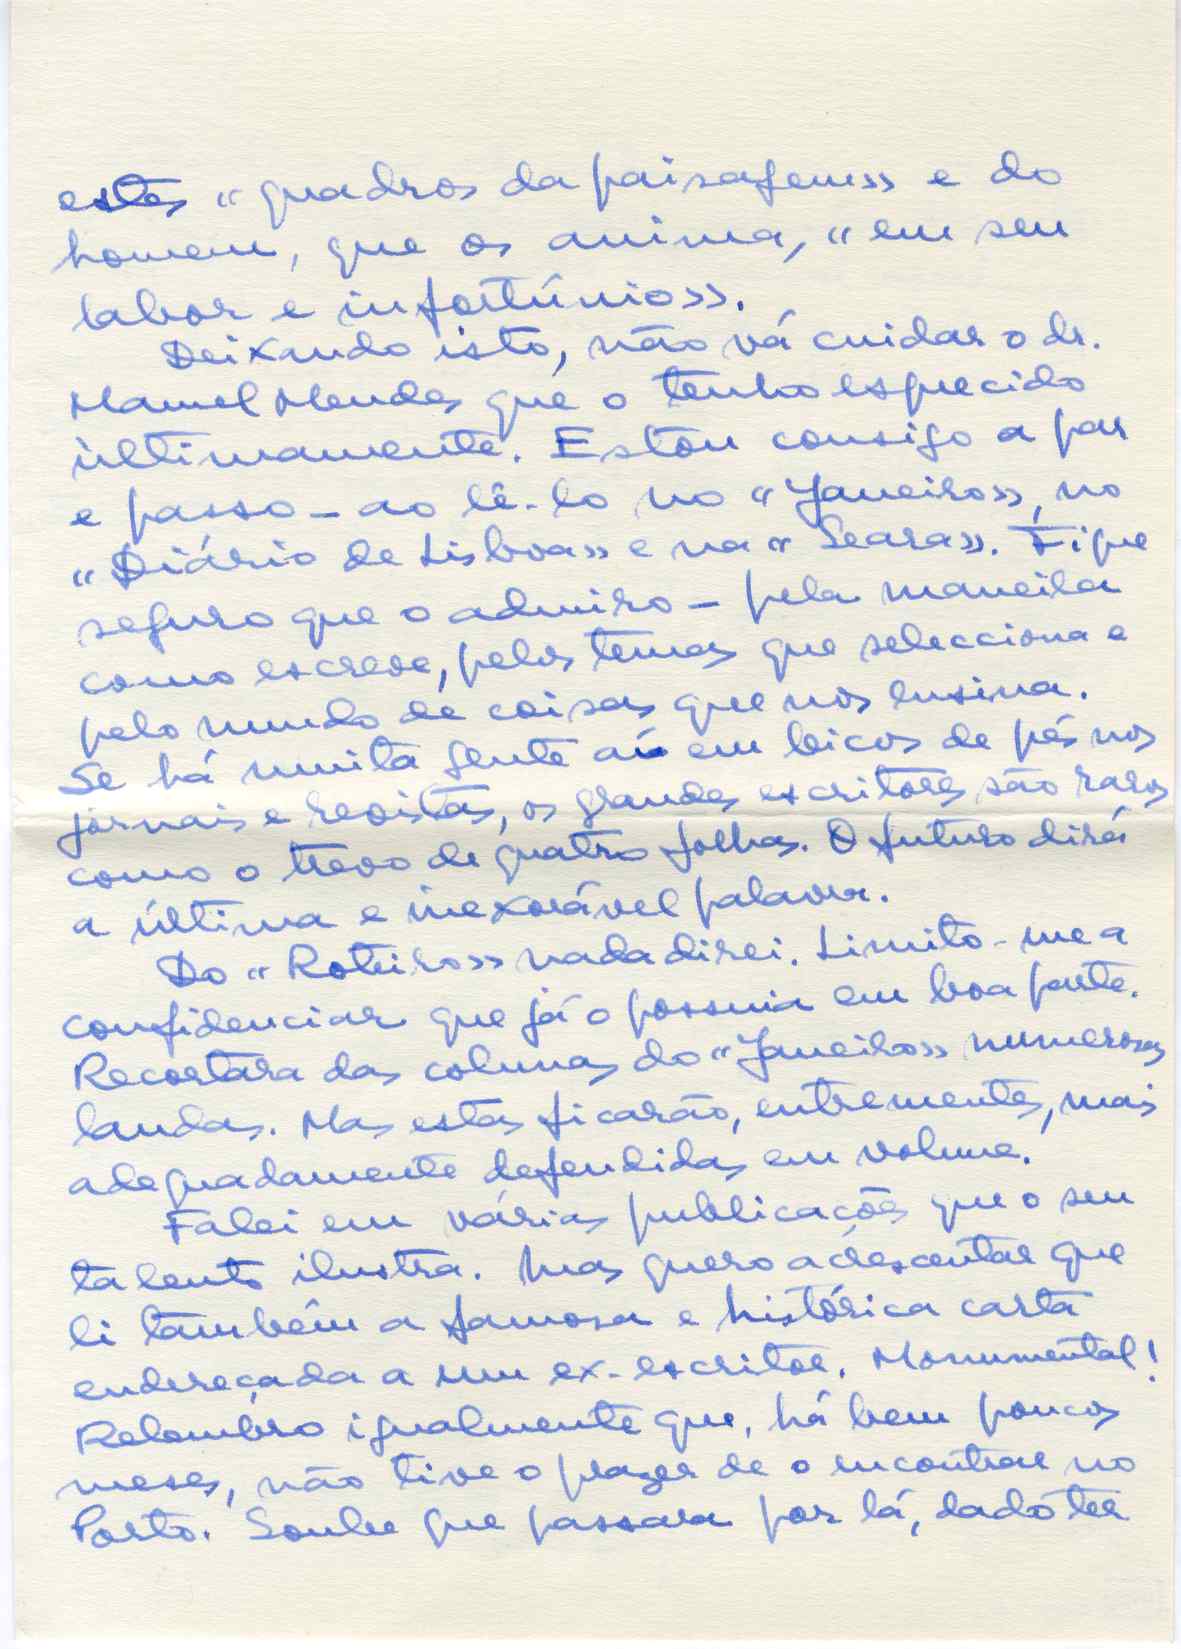 estes «quadros da paisagem» e do
homem, que os anima, «em seu
labor e infortúnio».
Deixando isto, não vá cuidar o dr.
Manuel Mendes que o tenho esquecido
ùltimamente. Estou consigo a par
e passo – ao lê-lo no «Janeiro», no
«Diário de Lisboa» e na «Seara». Fique
seguro que o admiro – pela maneira
como escreve, pelos temas que selecciona e
pelo mundo de coisas que nos ensina.
Se há muita gente aí em bicos de pés nos
jornais e revistas, os grandes escritores são raros
como o trevo de quatro folhas. O futuro dirá
a última e inexorável palavra.
Do «Roteiro» nada direi. Limito-me a
confidenciar que já o possuia em boa parte.
Recortara das colunas do «Janeiro» numerosas
laudas. Mas estas ficarão, entrementes, mais
adequadamente defendidas em volume.
Falei em várias publicações que o seu
talento ilustra. Mas quero acrescentar que
li também a famosa e histórica carta
endereçada a um ex-escritor. Monumental!
Relembro igualmente que, há bem poucos
meses, não tive o prazer de o encontrar no
Porto. Soube que passara por lá, dado ter